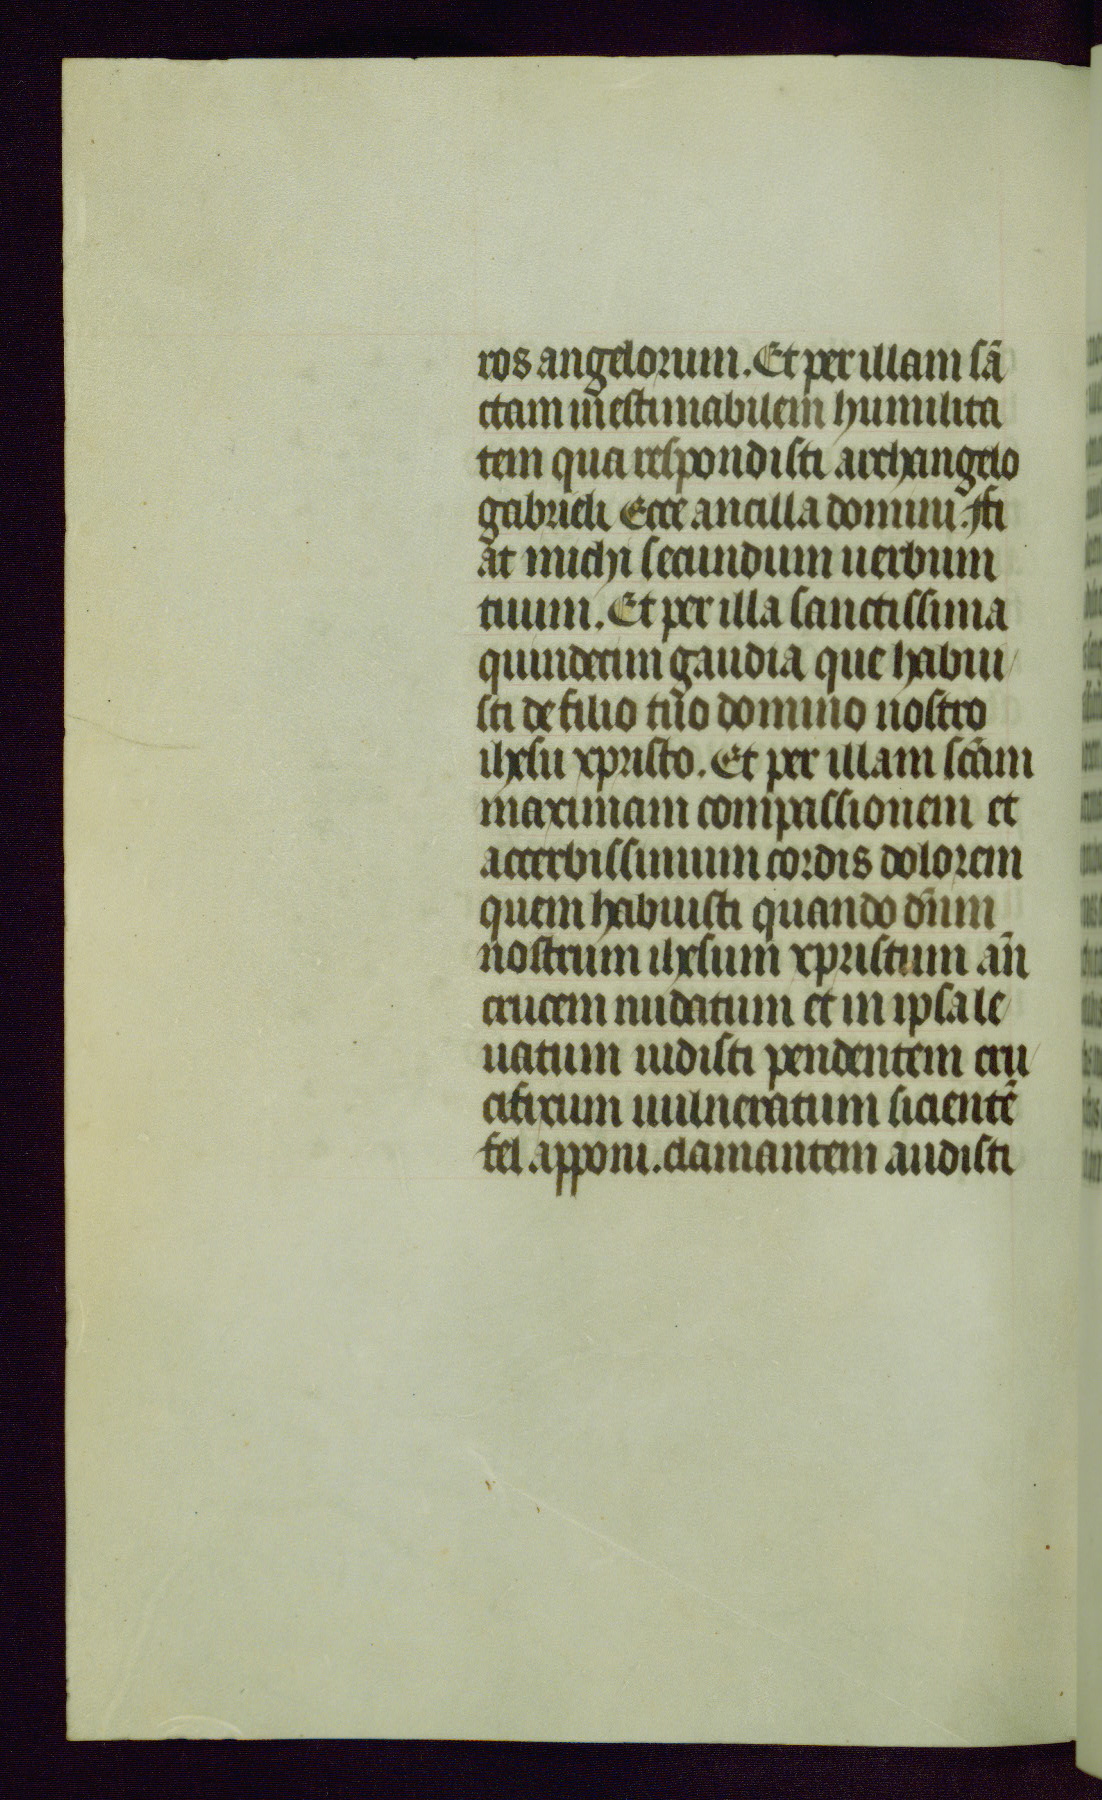 ros angelorum. Et per illam sā
ctam inestimabilem humilita
tem qua respondisti archangelo
gabrieli Ecce ancilla domini. fi
at michi secundum uerbum
tuum. Et per illa sanctissima
quindecim gaudia que habui
sti de filio tuo domino nostro
ihesu xpristo. Et per illam scām
maximam compassionem et
acerbissimum cordis dolorem
quem habuisti quando dn̄m
nostrum ihesum xpristum an̄
crucem nudatum et in ipsa le
uatum uidisti pendentem cru
cifixum uulneratum sicientē
fel apponi. clamantem audisti